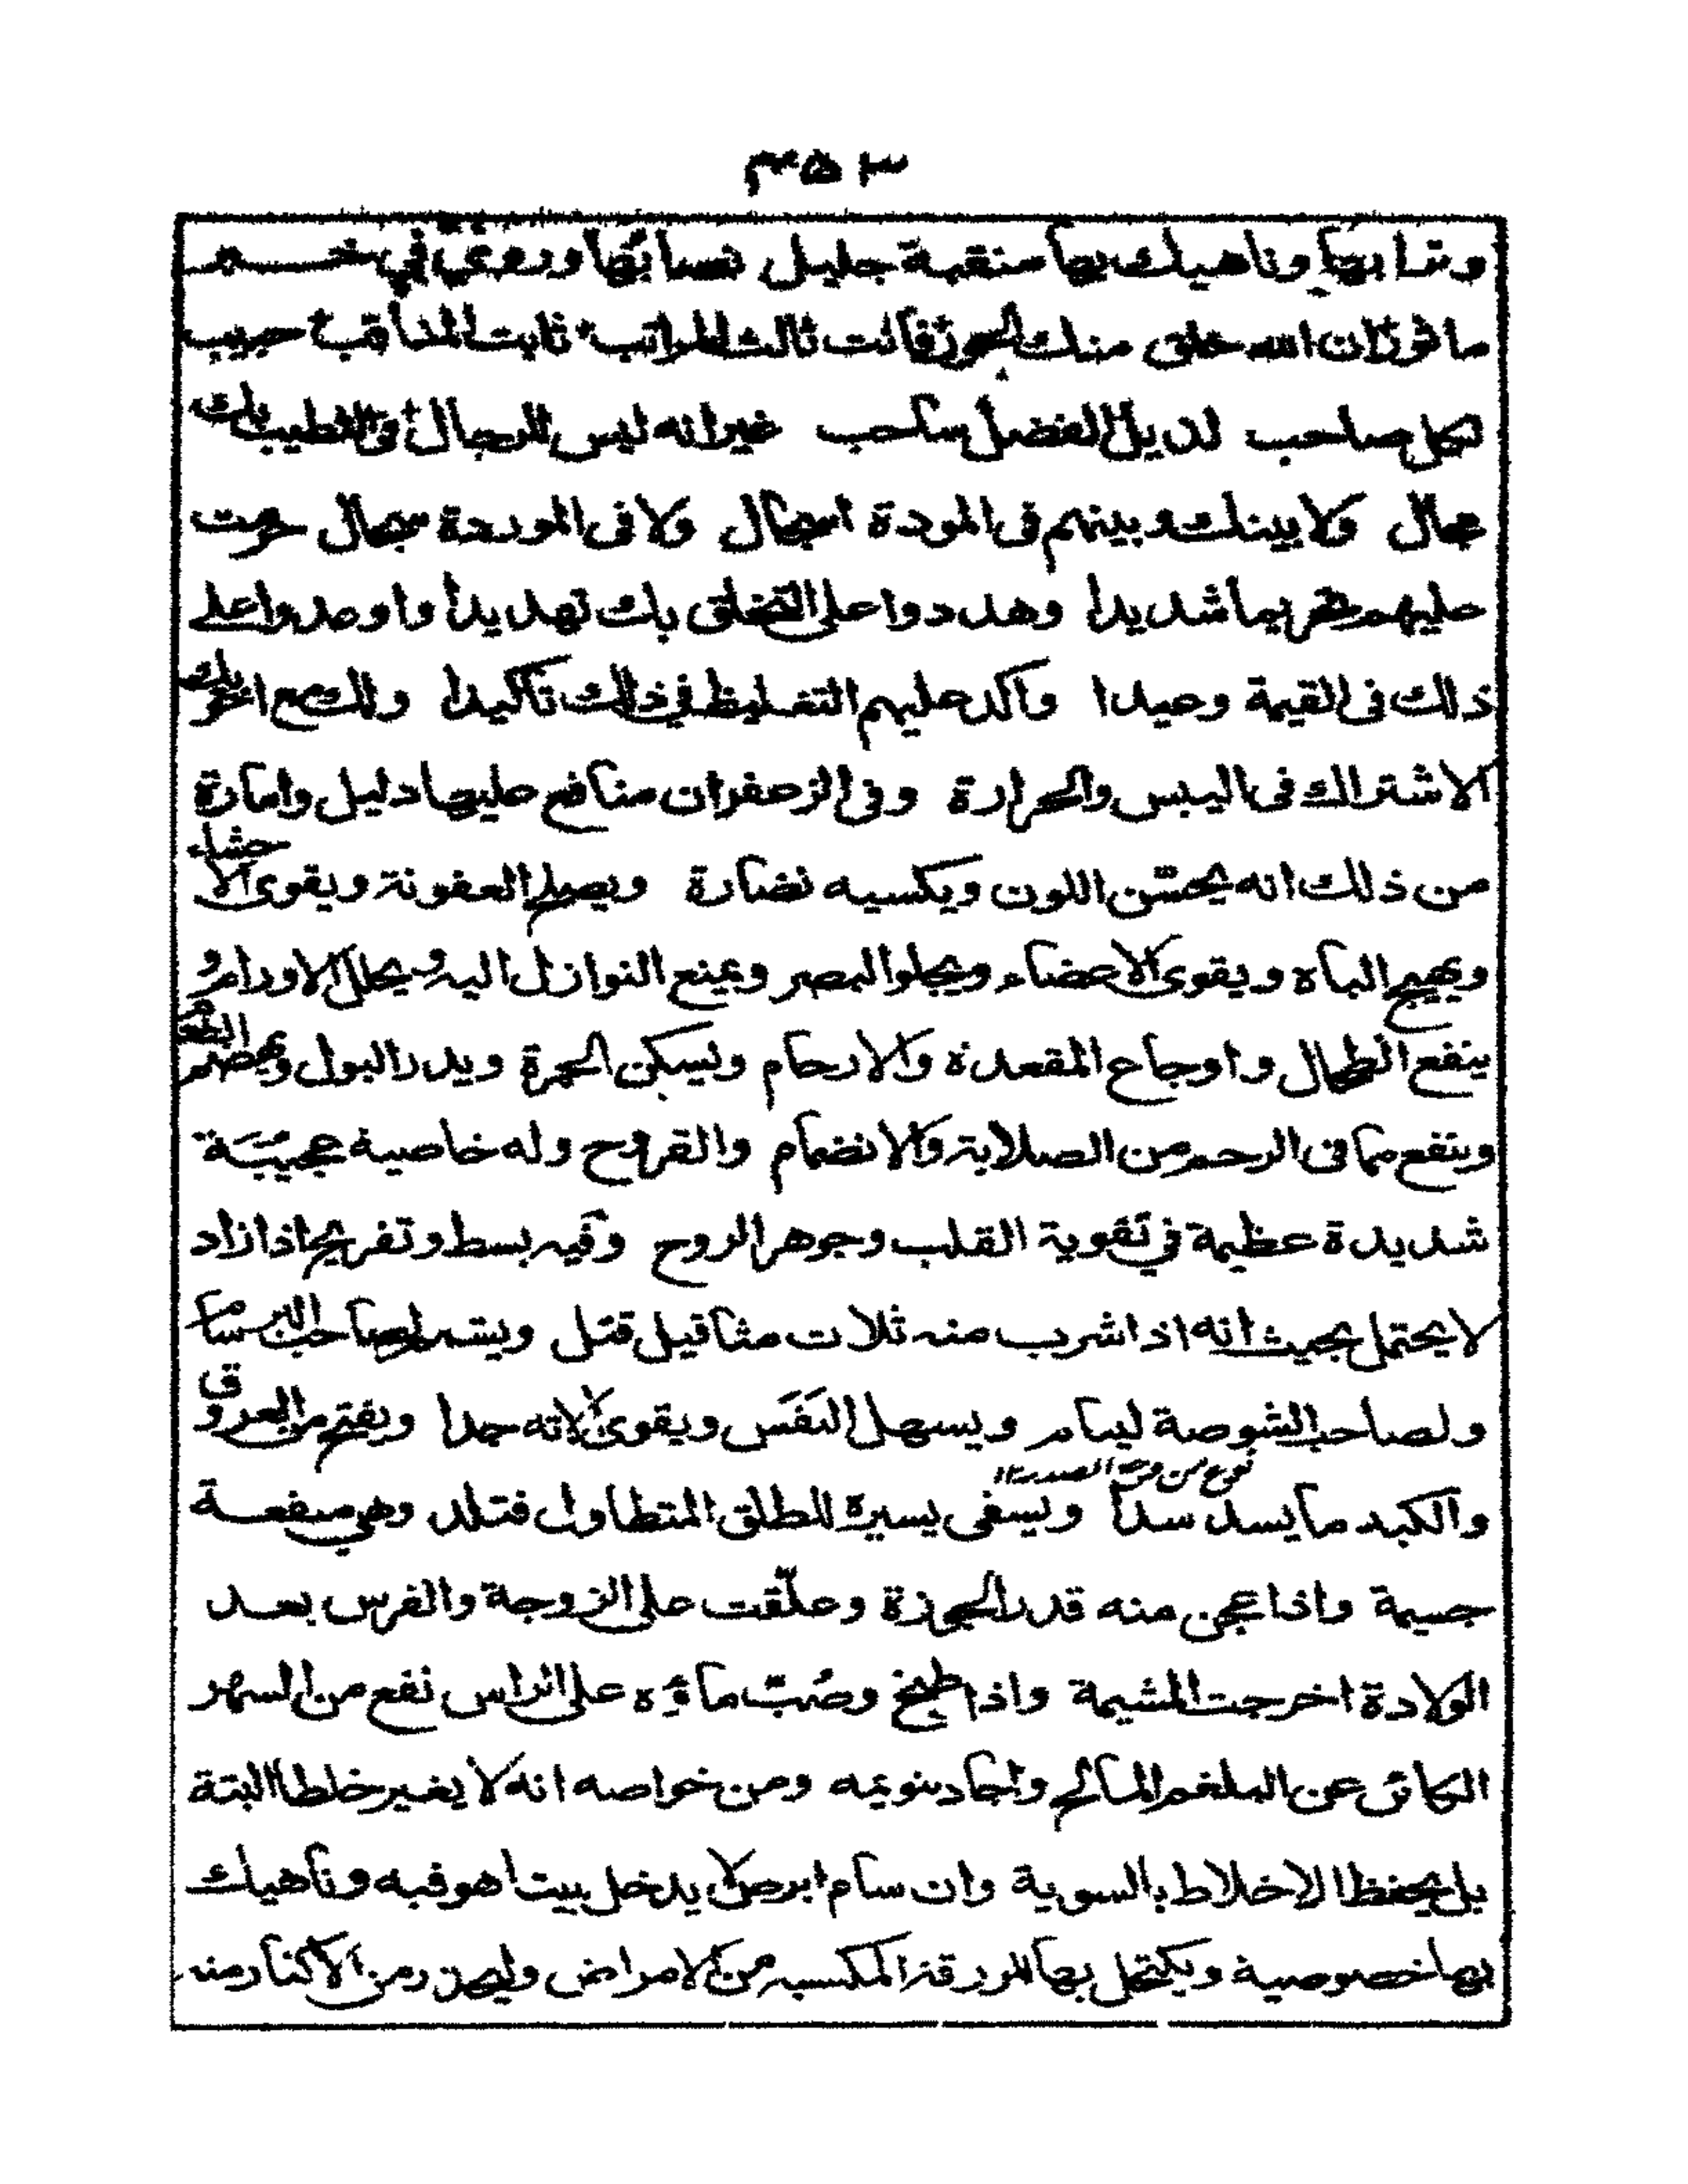 ٣٥٣
وترابها وناهيك بها منقبة جليل نصابها وروي في خبر
ماثور ان الله خلق منك الحور فانت ثالث المراتب ثابت المناقب حبيب
لكل صاحب لذيل الفضل ساحب غير انه ليس للرجال في التطيب بك
مجال ولا بينك وبينهم في المودة اسجال ولا في الموردة سجال حرمت
عليهم تحريما شديدا وهددوا على التخلق بك تهديدا واوعدوا على
ذلك في القيمة وعيدا واكد عليهم التغليظ في ذلك تاكيدا ولك مع اخويك
الاشتراك في اليبس والحرارة وفي الزعفران منافع عليها دليل وامارة
من ذلك انه يحسّن اللون ويكسيه نضارة ويصلح العفونة ويقوى الاحشاء
ويهيج الباه ويقوى الاعضاء ويجلو البصر ويمنع النوازل اليه ويحلل الاورام و
ينفع الطحال واوجاع المقعدة والارحام ويسكن الحمرة ويدر البول ويهضم الطعام
وينفع مما في الرحم من الصلابة والانضمام والقروح وله خاصية عجيبَة
شديدة عظيمة في تقوية القلب وجوهر الروح وفيه بسط وتفريح اذا زاد
لا يحتمل بحيث انه اذا شرب منه ثلاث مثاقيل قتل ويشم لصاحب البرسام
ولصاحب الشوصة لينام ويسهل النفَس ويقوى الاته جدا ويفتح من العروق
نوع من قرحة الصدر ١٢
والكبد ما يسد سدا ويسقى يسيره للطلق المتطاول فتلد وهي منفعة
جسيمة واذا عجن منه قدر الجوزة وعلّقت على الزوجة والفرس بعد
الولادة اخرجت المشيمة واذا طبخ وصُبّ ماؤه على الراس نفع من السهر
الكائن عن البلغم المالح واجاد تنويمه ومن خواصه انه لا يغير خلطا البتة
بل يحفظ الاخلاط بالسوية وان سام ابرص لا يدخل بيتا هو فيه وناهيك
بها خصوصية ويكتحل بها للزرقة المكتسبه من الامراض وليحذر من الاكثار منه